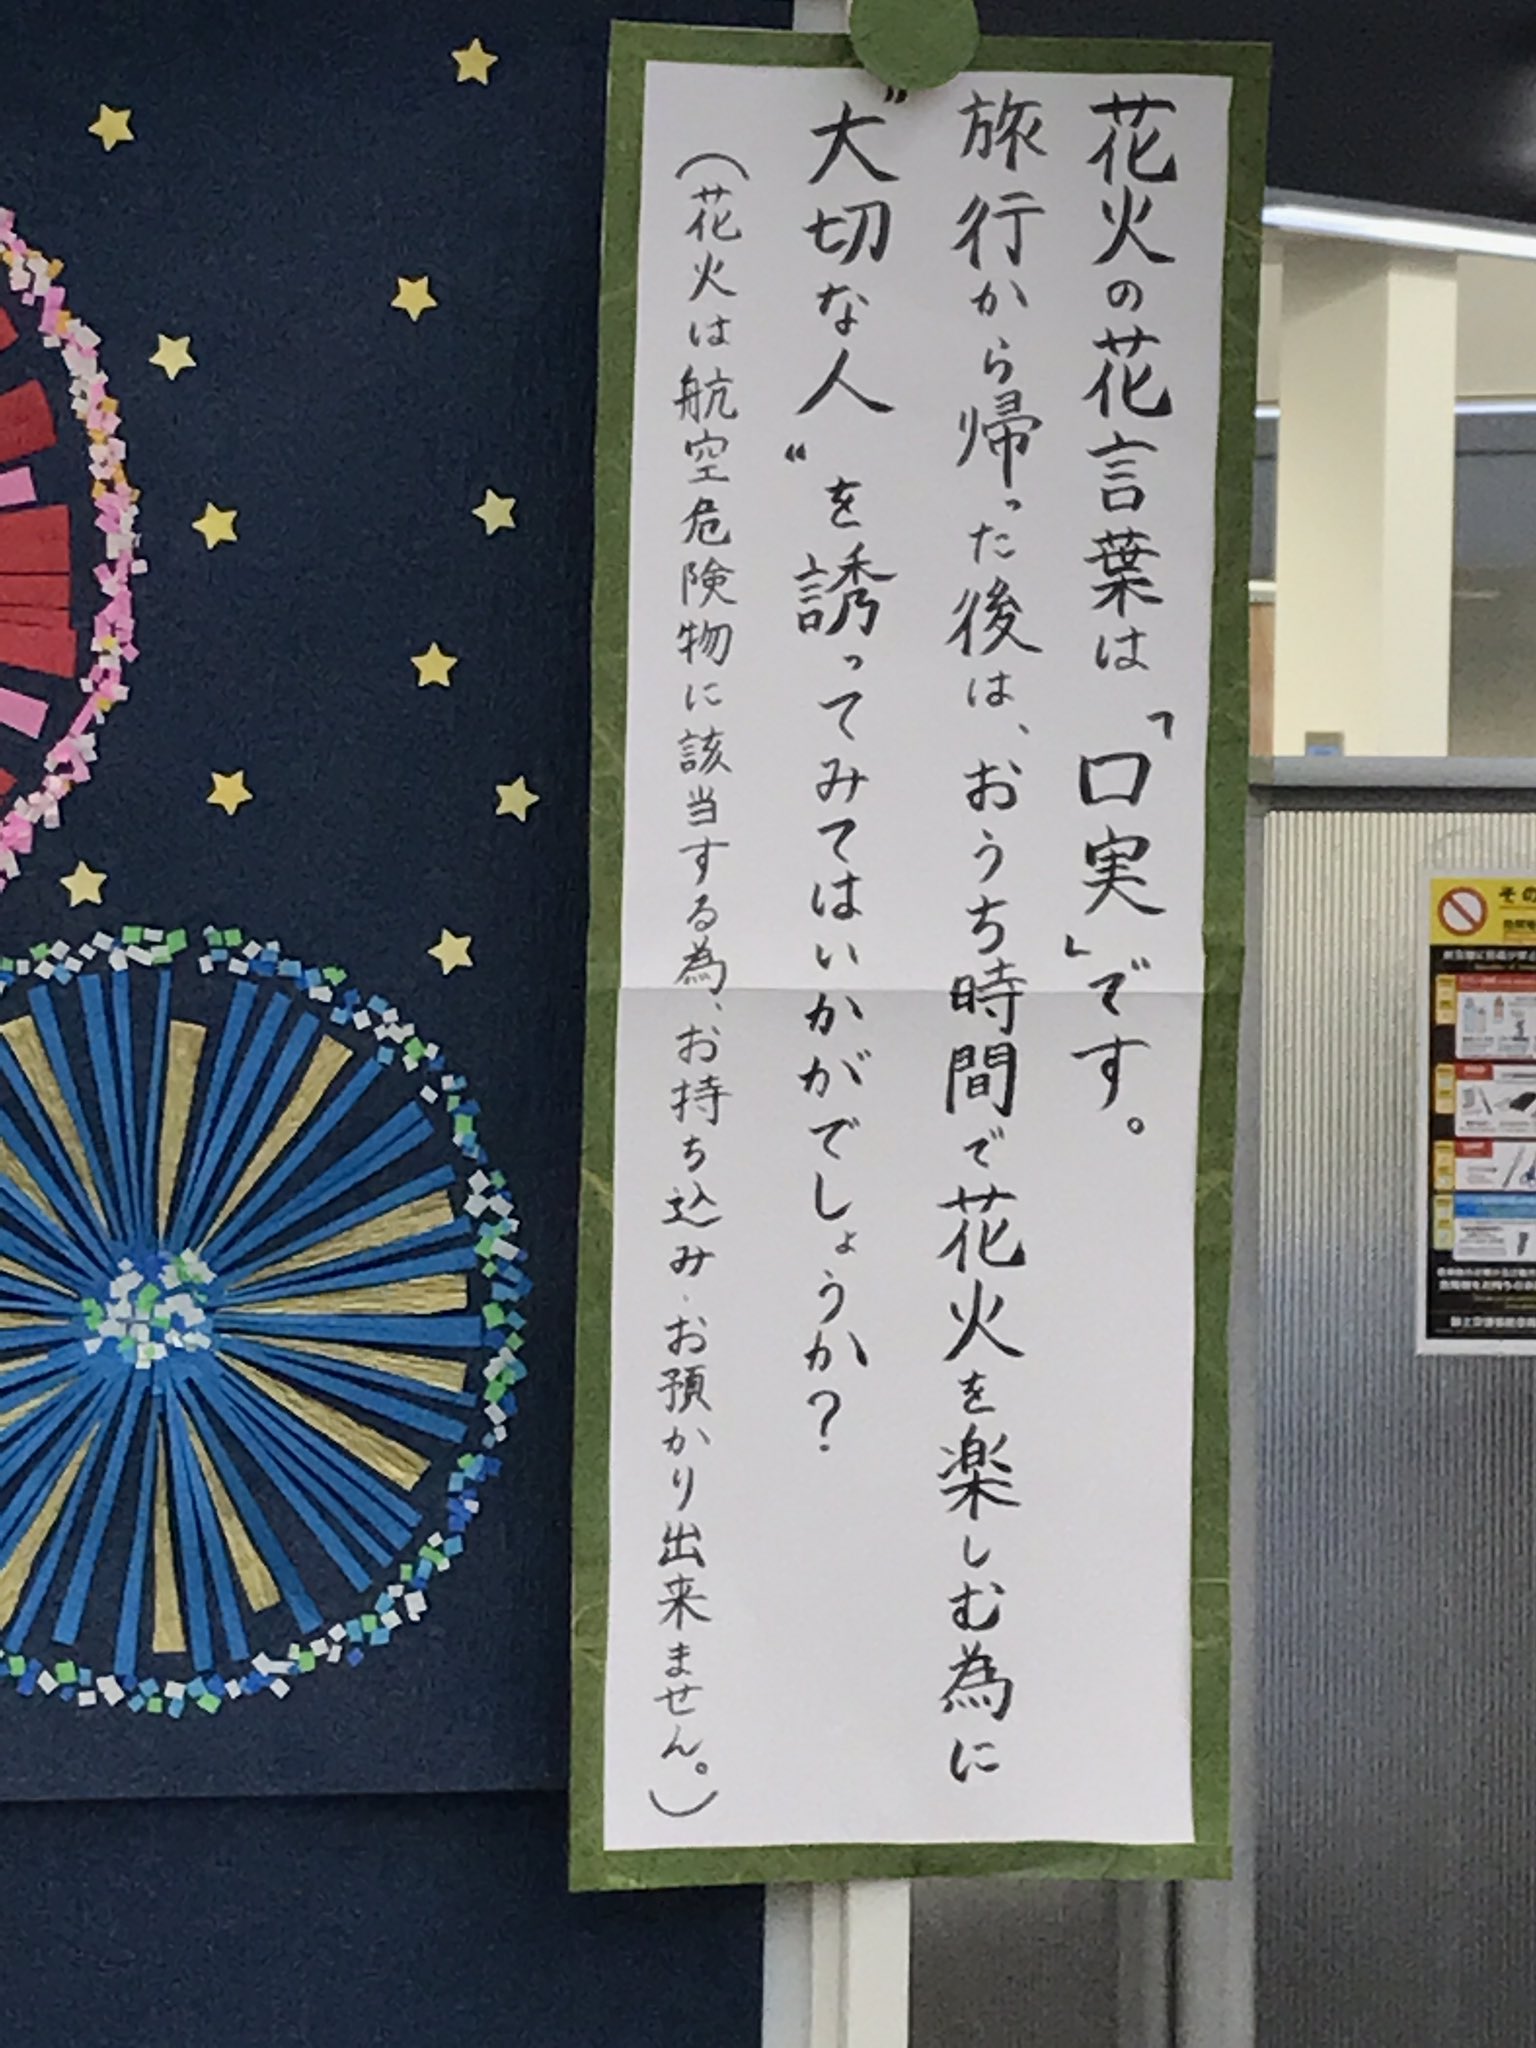 花火の花言葉は「口実」です。
旅行から帰った後は、おうち時間で花火を楽しむ為に
"大切な人"を誘ってみてはいかがでしょうか?
(花火は航空危険物に該当する為、お持ち込み・お預かり出来ません。)
その